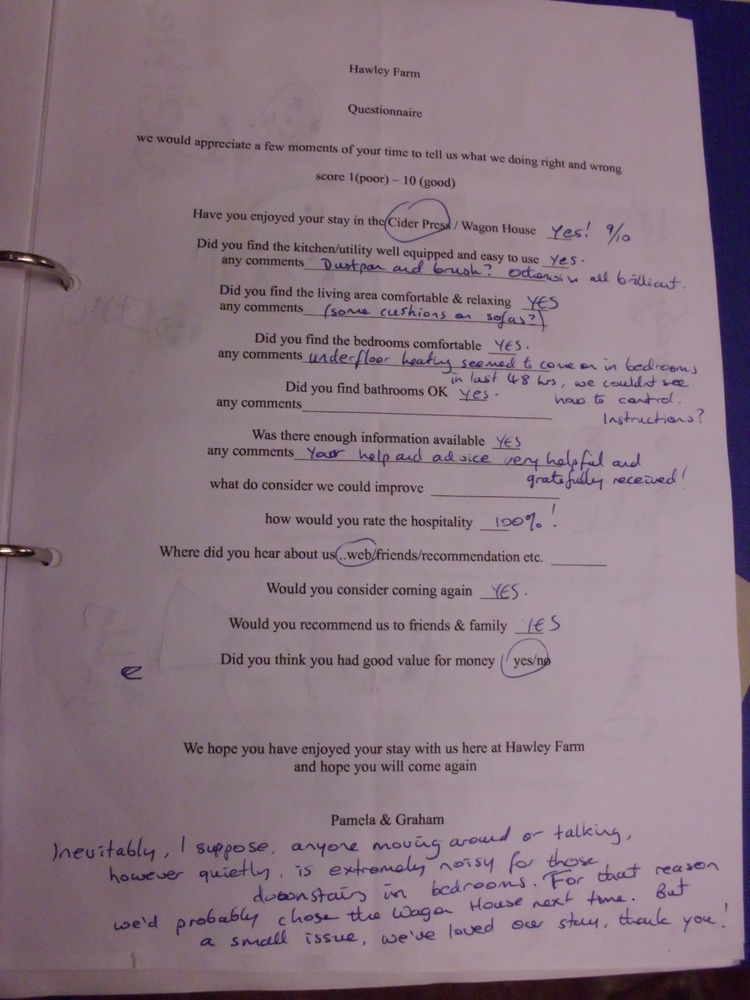 Hawley Farm
Questionnaire
we would appreciate a few moments of your time to tell us what we doing right and wrong
score 1(poor) – 10 (good)
Have you enjoyed your stay in the Cider Press / Wagon House Yes! 9/10
Did you find the kitchen/utility well equipped and easy to use Yes.
any comments Dustpan and brush? Otherwise all brilliant.
Did you find the living area comfortable & relaxing YES
any comments (some cushions on sofas?)
Did you find the bedrooms comfortable YES.
any comments underfloor heating seemed to come on in bedrooms
in last 48 hrs, we couldn't see
Did you find bathrooms OK Yes.
how to control.
any comments
Instructions?
Was there enough information available YES
any comments Your help and advice very helpful and
gratefully received!
what do consider we could improve
how would you rate the hospitality 100%!
Where did you hear about us ..web/friends/recommendation etc.
Would you consider coming again YES.
Would you recommend us to friends & family YES
Did you think you had good value for money yes/no
We hope you have enjoyed your stay with us here at Hawley Farm
and hope you will come again
Pamela & Graham
Inevitably, I suppose, anyone moving around or talking,
however quietly, is extremely noisy for those
downstairs in bedrooms. For that reason
we'd probably chose the Wagon House next time. But
a small issue, we've loved our stay, thank you!